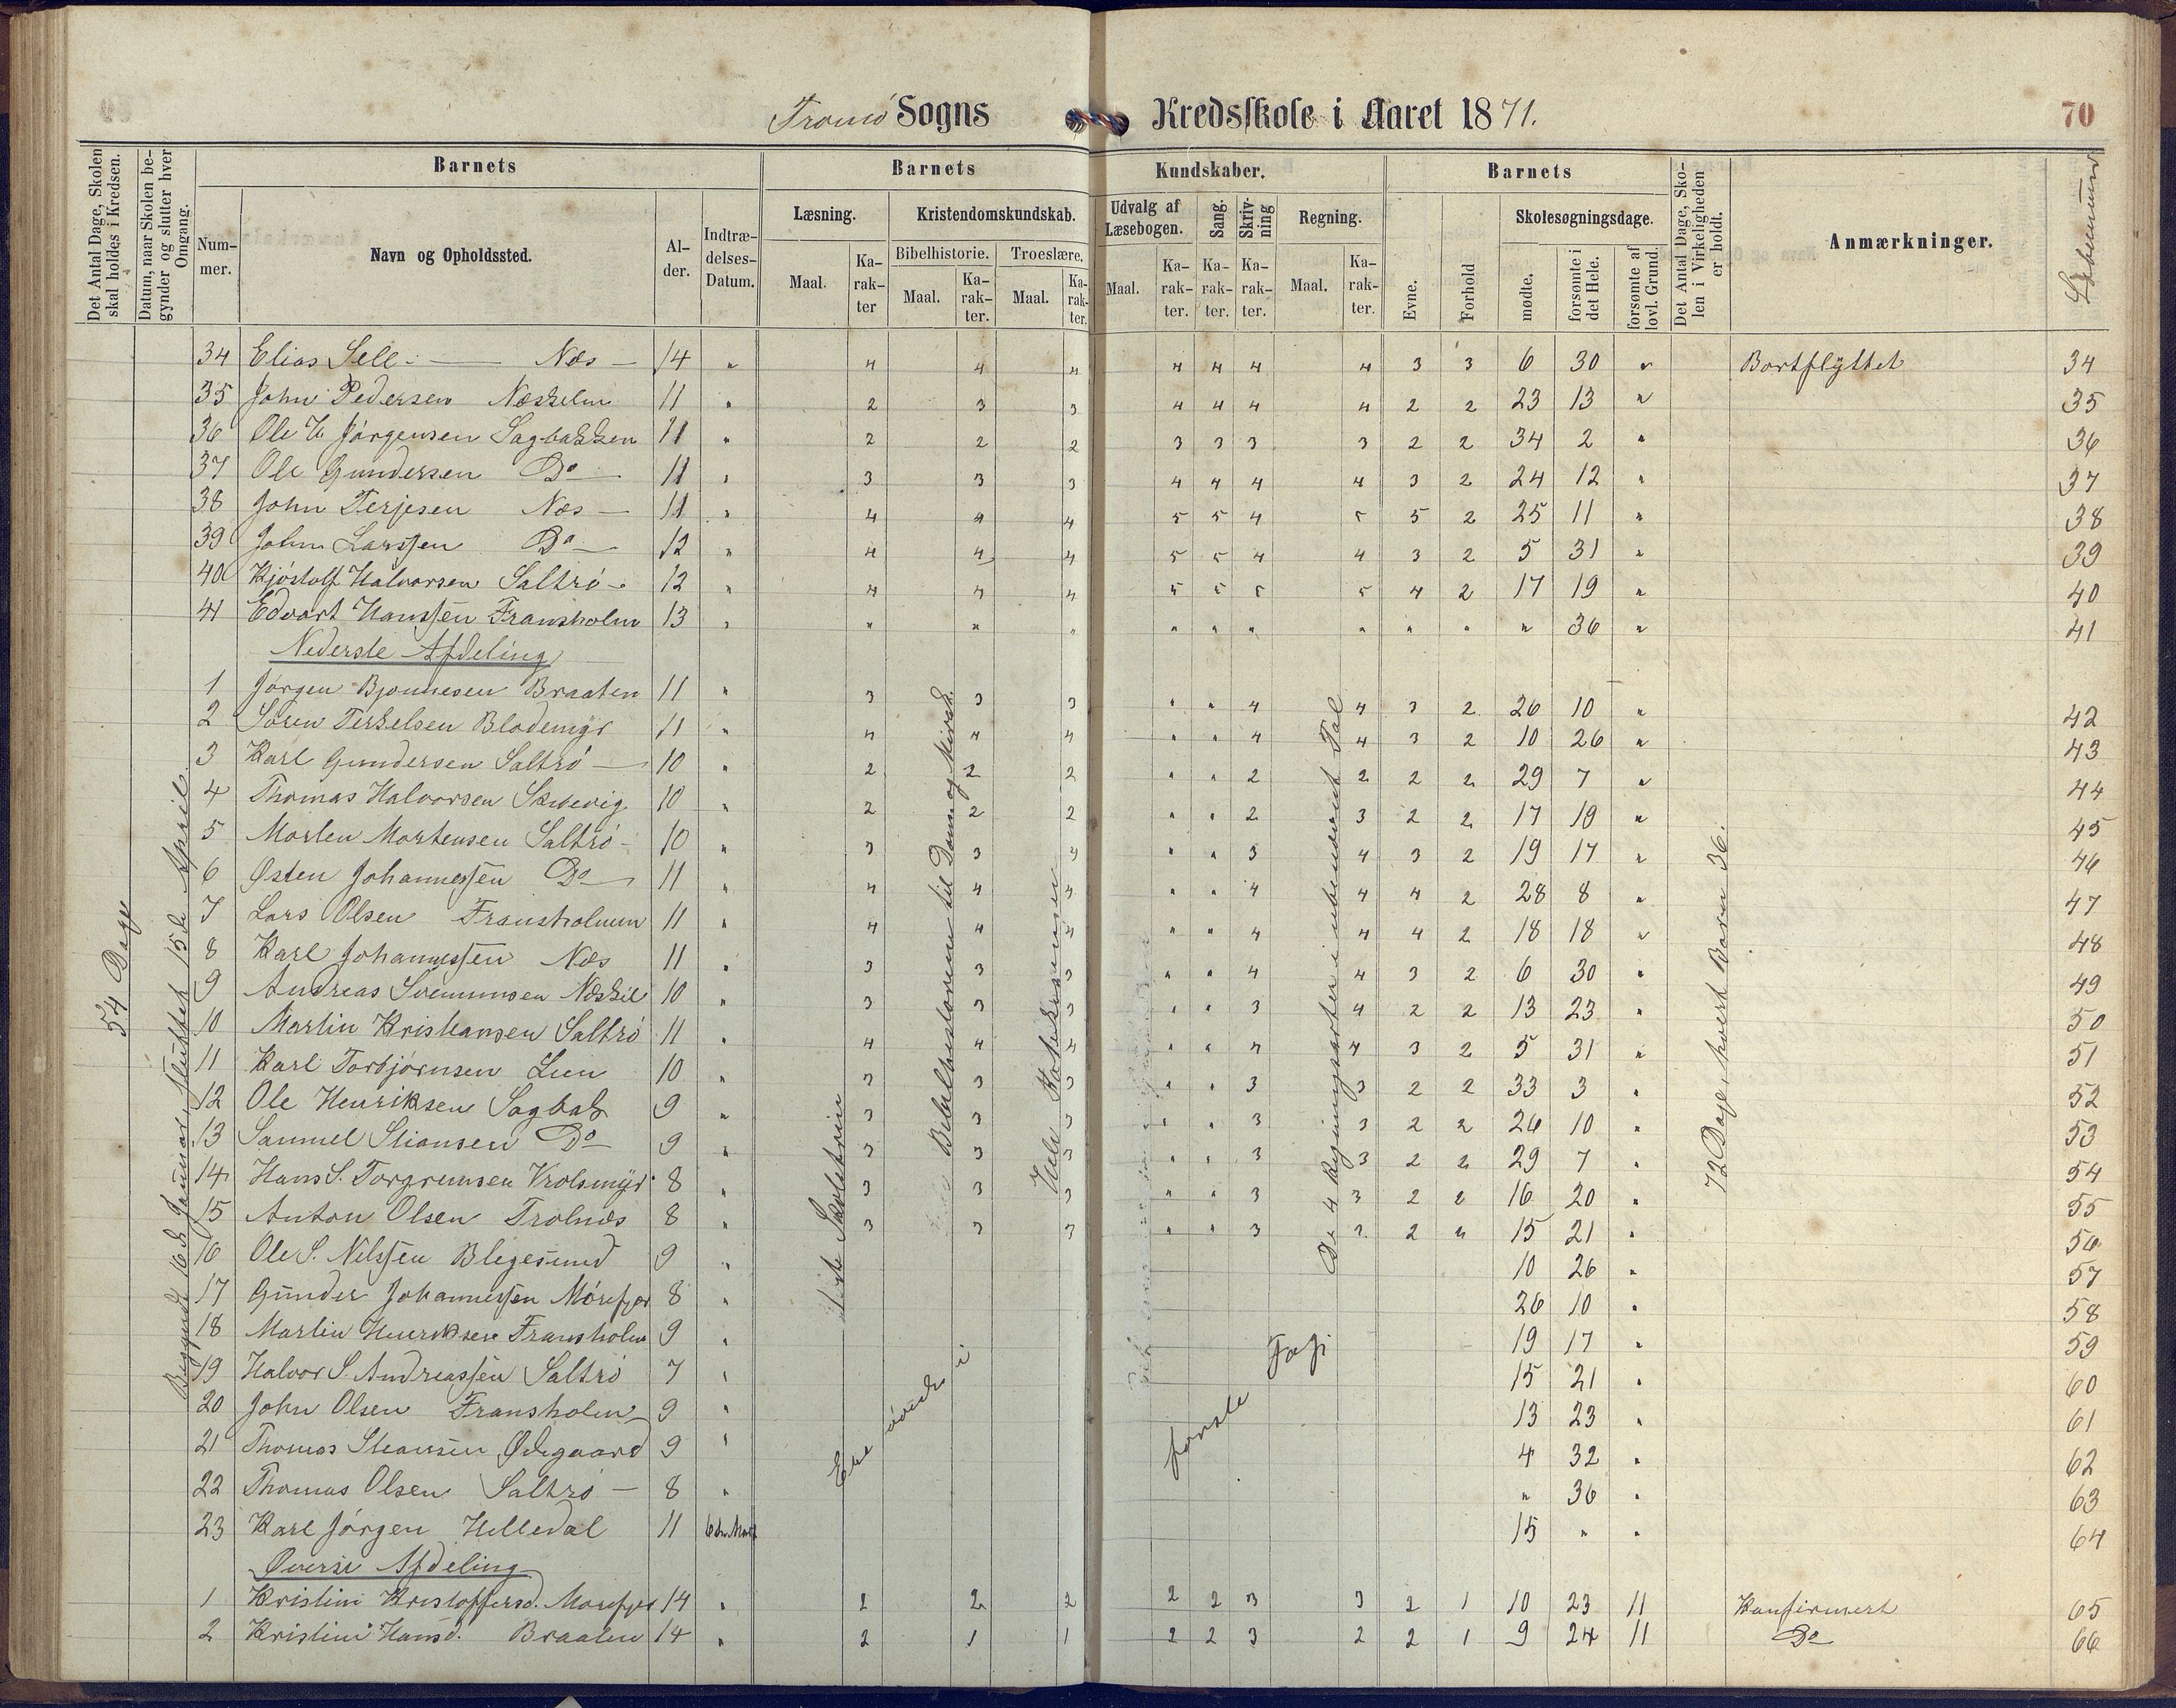 Tromø Sogns Kredsskole i Aaret 1871.
70
Det Antal Dage, Skolen skal holdes i Kredsen.
Datum, naar Skolen begynder og slutter hver Omgang.
Barnets
Nummer.
Navn og Opholdssted.
Alder.
Indtrædelses-Datum.
Barnets Kundskaber.
Læsning.
Maal.
Karakter
Kristendomskundskab.
Bibelhistorie.
Maal.
Karakter.
Troeslære.
Maal.
Karakter.
Udvalg af Læsebogen.
Maal.
Karakter.
Sang.
Karakter.
Skrivning
Karakter.
Regning.
Maal.
Karakter.
Barnets
Evne.
Forhold
Skolesøgningsdage.
mødte.
forsømte i det Hele.
forsømte af lovl. Grund.
Det Antal Dage, Skolen i Virkeligheden er holdt.
Anmærkninger.
Løbenummer
54 Dage
Begyndt 16de Januar, sluttet 15de April
34 Elias Sell - Næs - 14 " 4 4 4 4 4 4 4 3 3 6 30 " Bortflyttet 34
35 John Pedersen Næskilen 11 " 2 3 3 4 4 4 4 2 2 23 13 " 35
36 Ole H. Jørgensen Sagbakken 11 " 2 2 2 3 3 3 3 2 2 34 2 " 36
37 Ole Gundersen Do 11 " 3 3 3 4 4 4 4 3 2 24 12 " 37
38 John Terjesen Næs - 11 " 4 4 4 5 5 4 5 5 2 25 11 " 38
39 John Larssen Do 12 " 4 4 4 5 5 4 4 3 2 5 31 " 39
40 Kjøstolf Halvorsen Saltrø 12 " 4 4 4 5 5 5 5 4 2 17 19 " 40
41 Edvart Hanssen Fransholm 13 " " " " " " " " " " " 36 " 41
Nederste Afdeling
1 Jørgen Bjonnesen Braaten 11 " 3 3 3 " " 4 4 3 2 26 10 " 42
2 Søren Terkelsen Blodemyr 11 " 4 4 4 " " 4 4 3 2 10 26 " 43
3 Karl Gundersen Saltrø 10 " 2 2 2 " " 2 2 2 2 29 7 " 44
4 Thomas Halvorsen Skibevig 10 " 2 2 2 " " 2 3 2 2 17 19 " 45
5 Morten Mortensen Saltrø 10 " 3 3 3 " " 3 4 3 2 19 17 " 46
6 Østen Johannessen Do 11 " 4 4 4 " " 4 4 4 2 28 8 " 47
7 Lars Olsen Fransholmen 11 " 4 4 4 " " 4 4 4 2 18 18 " 48
8 Karl Johannessen Næs 11 " 3 3 3 " " 4 4 3 2 6 30 " 49
9 Andreas Svenumsen Næskil 10 " 3 3 3 " " 3 4 2 2 13 23 " 50
10 Martin Kristiansen Saltrø 11 " 4 4 4 " " 4 4 3 2 5 31 " 51
11 Karl Torbjørnsen Lien 10 " 3 3 3 " " 3 3 2 2 33 3 " 52
12 Ole Henriksen Sagbak 9 " 3 3 3 " " 3 3 2 2 26 10 " 53
13 Samuel Stiansen Do 9 " 3 3 3 " " 3 3 2 2 29 7 " 54
14 Hans S. Torgrimsen Krolsmyr 8 " 3 3 3 " " 3 3 2 2 16 20 " 55
15 Anton Olsen Trolnæs 8 " 3 3 3 " " 3 3 2 " 15 21 " 56
16 Ole S. Nilssen Blegesund 9 " 10 26 " 57
17 Gunder Johannessen Mørefjær 8 " 26 10 " 58
18 Martin Henriksen Fransholm 9 " 19 17 " 59
19 Halvor S. Andreassen Saltrø 7 " 15 21 " 60
20 John Olsen Fransholm 9 " 13 23 " 61
21 Thomas Steansen Ødegaard 9 " 4 32 " 62
22 Thomas Olsen Saltrø - 8 " " 36 " 63
23 Karl Jørgen Helledal 11 6te Marts 15 " " 64
Øverste Afdeling
1 Kristine Kristoffersd. Morefjær 14 " 2 2 2 2 2 3 3 2 1 10 23 11 Konfirmert 65
2 Kristine Hansd. Braaten 14 " 2 1 1 2 2 3 2 2 1 9 24 11 Do 66
Bibelhistorien til Dom og Mirak.
Hele Katekismusen
De 4 Regningsarter i ubenævnt Tal
første
72 Dage, hvert Barn 36.